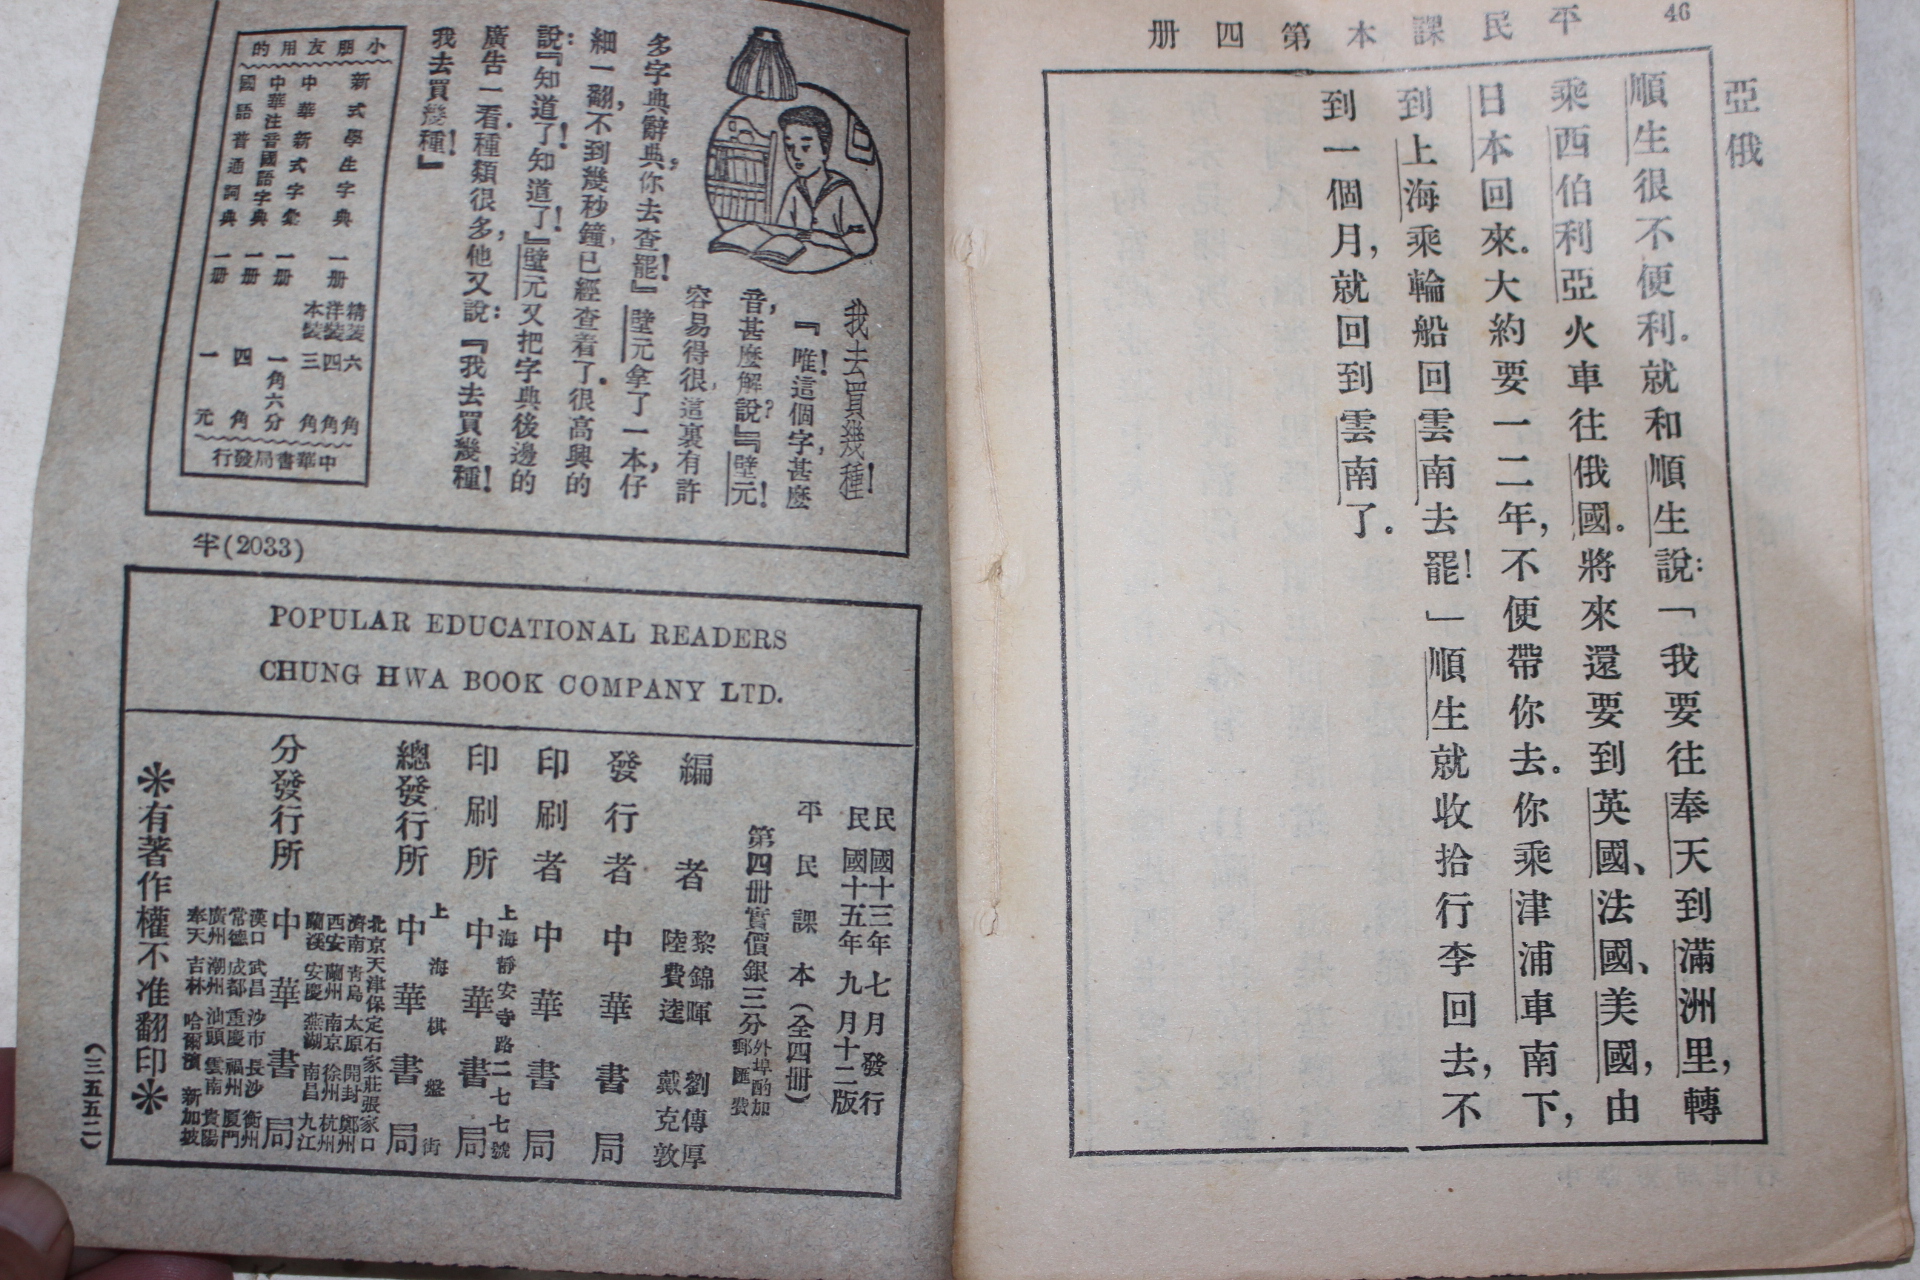 46
平民課本第四册
亞俄
順生很不便利。就和順生說：「我要往奉天到滿洲里，轉
乘西伯利亞火車往俄國。將來還要到英國、法國、美國，由
日本回來。大約要一二年，不便帶你去。你乘津浦車南下，
到上海乘輪船回雲南去罷！」順生就收拾行李回去，不
到一個月，就回到雲南了。
我去買幾種！
『唯！這個字，甚麼
音，甚麼解說？』『壁元！
容易得很，這裏有許
多字典辭典，你去查罷！』壁元拿了一本，仔
細一翻，不到幾秒鐘，已經查着了。很高興的
說：『知道了！知道了！』壁元又把字典後邊的
廣告一看，種類很多，他又說：『我去買幾種！
我去買幾種！』
小朋友用的
新式學生字典 一册 精裝 六角 洋裝 四角
中華新式字彙 一册 本裝 三角
中華注音國語字典 一册 一角六分
國語普通詞典 一册 四角
一元
中華書局發行
半(2033)
POPULAR EDUCATIONAL READERS
CHUNG HWA BOOK COMPANY LTD.
民國十三年七月發行
民國十五年九月十二版
平民課本（全四册）
第四册實價銀三分
外埠酌加
郵匯費
編者
黎錦暉 劉傳厚
陸費逵 戴克敦
發行者 中華書局
印刷者 中華書局
上海靜安寺路二七七號
印刷所 中華書局
上海棋盤街
總發行所 中華書局
北京 天津 保定 石家莊 張家口
濟南 青島 太原 開封 鄭州
西安 蘭州 南京 徐州 杭州
蘭溪 安慶 蕪湖 南昌 九江
分發行所 中華書局
漢口 武昌 沙市 長沙 衡州
常德 成都 重慶 福州 廈門
廣州 潮州 汕頭 雲南 貴陽
奉天 吉林 哈爾濱 新加坡
＊有著作權不准翻印＊
（三五五二）